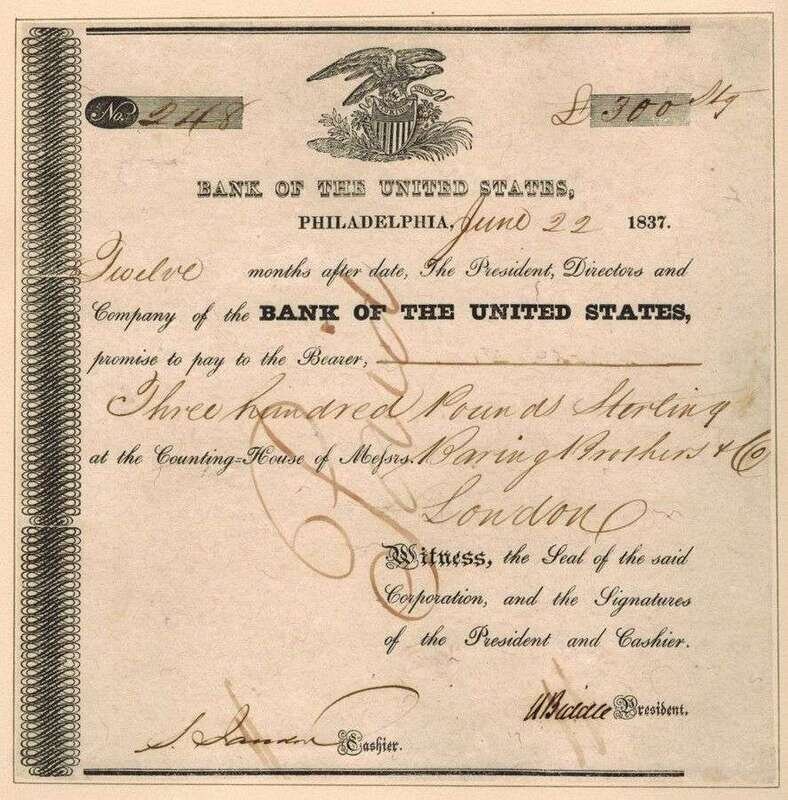 No. 248
£ 300 Stg
BANK OF THE UNITED STATES,
PHILADELPHIA, June 22 1837.
Twelve months after date, The President, Directors and
Company of the BANK OF THE UNITED STATES,
promise to pay to the Bearer,
Three hundred Pounds Sterling
at the Counting-House of Messrs. Baring Brothers & Co
London
Paid
Witness, the Seal of the said
Corporation, and the Signatures
of the President and Cashier.
N Biddle President.
S. Jaudon Cashier.